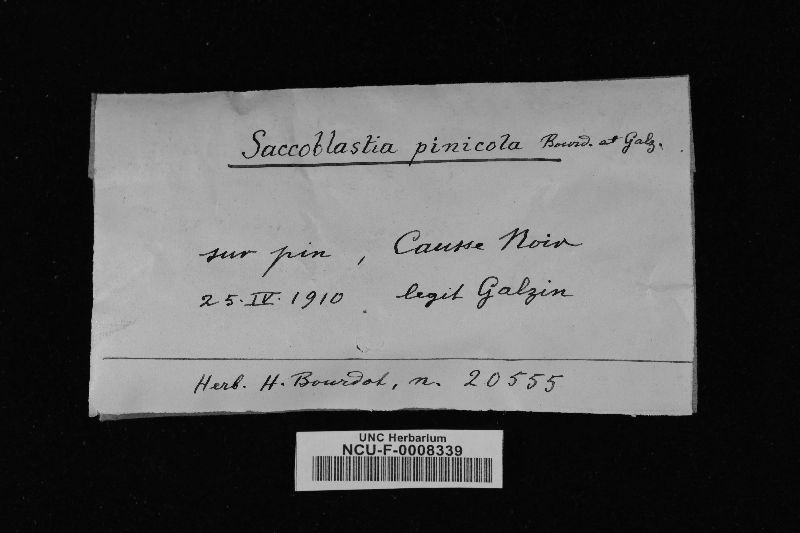 Saccoblastia pinicola Bourd. et Galz.
sur pin, Causse Noir
25.IV.1910 legit Galzin
Herb. H. Bourdot, n. 20555
UNC Herbarium
NCU-F-0008339